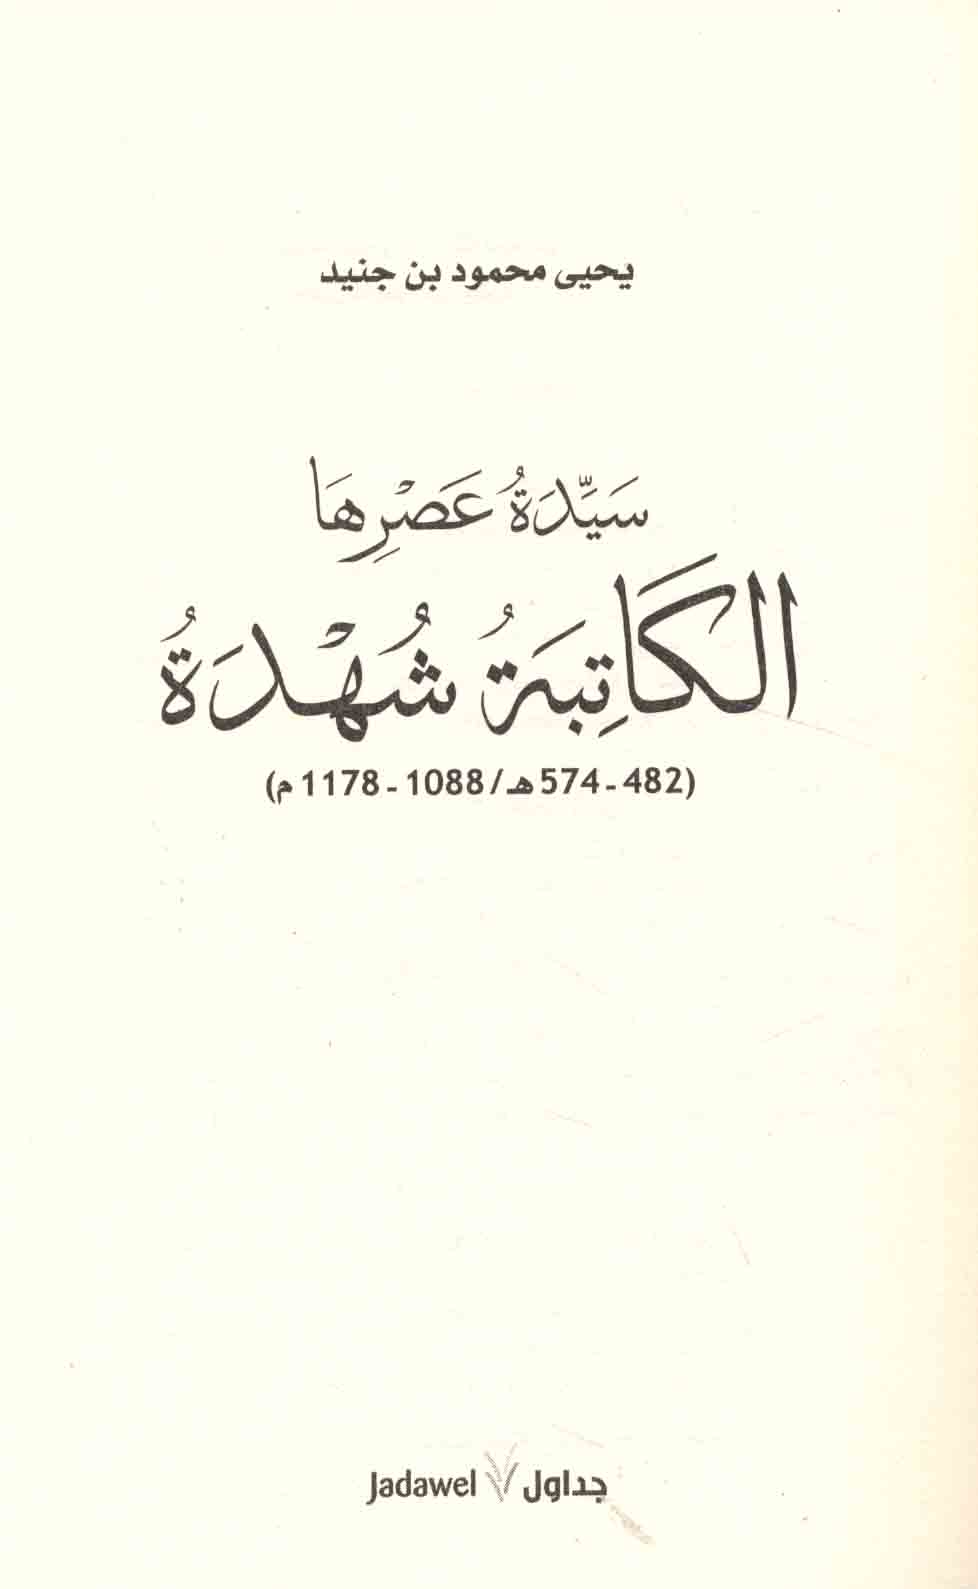 يحيى محمود بن جنيد
سَيِّدَةُ عَصْرِهَا
الكَاتِبَةُ شُهْدَةُ
(482 - 574 هـ / 1088 - 1178 م)
جداول Jadawel